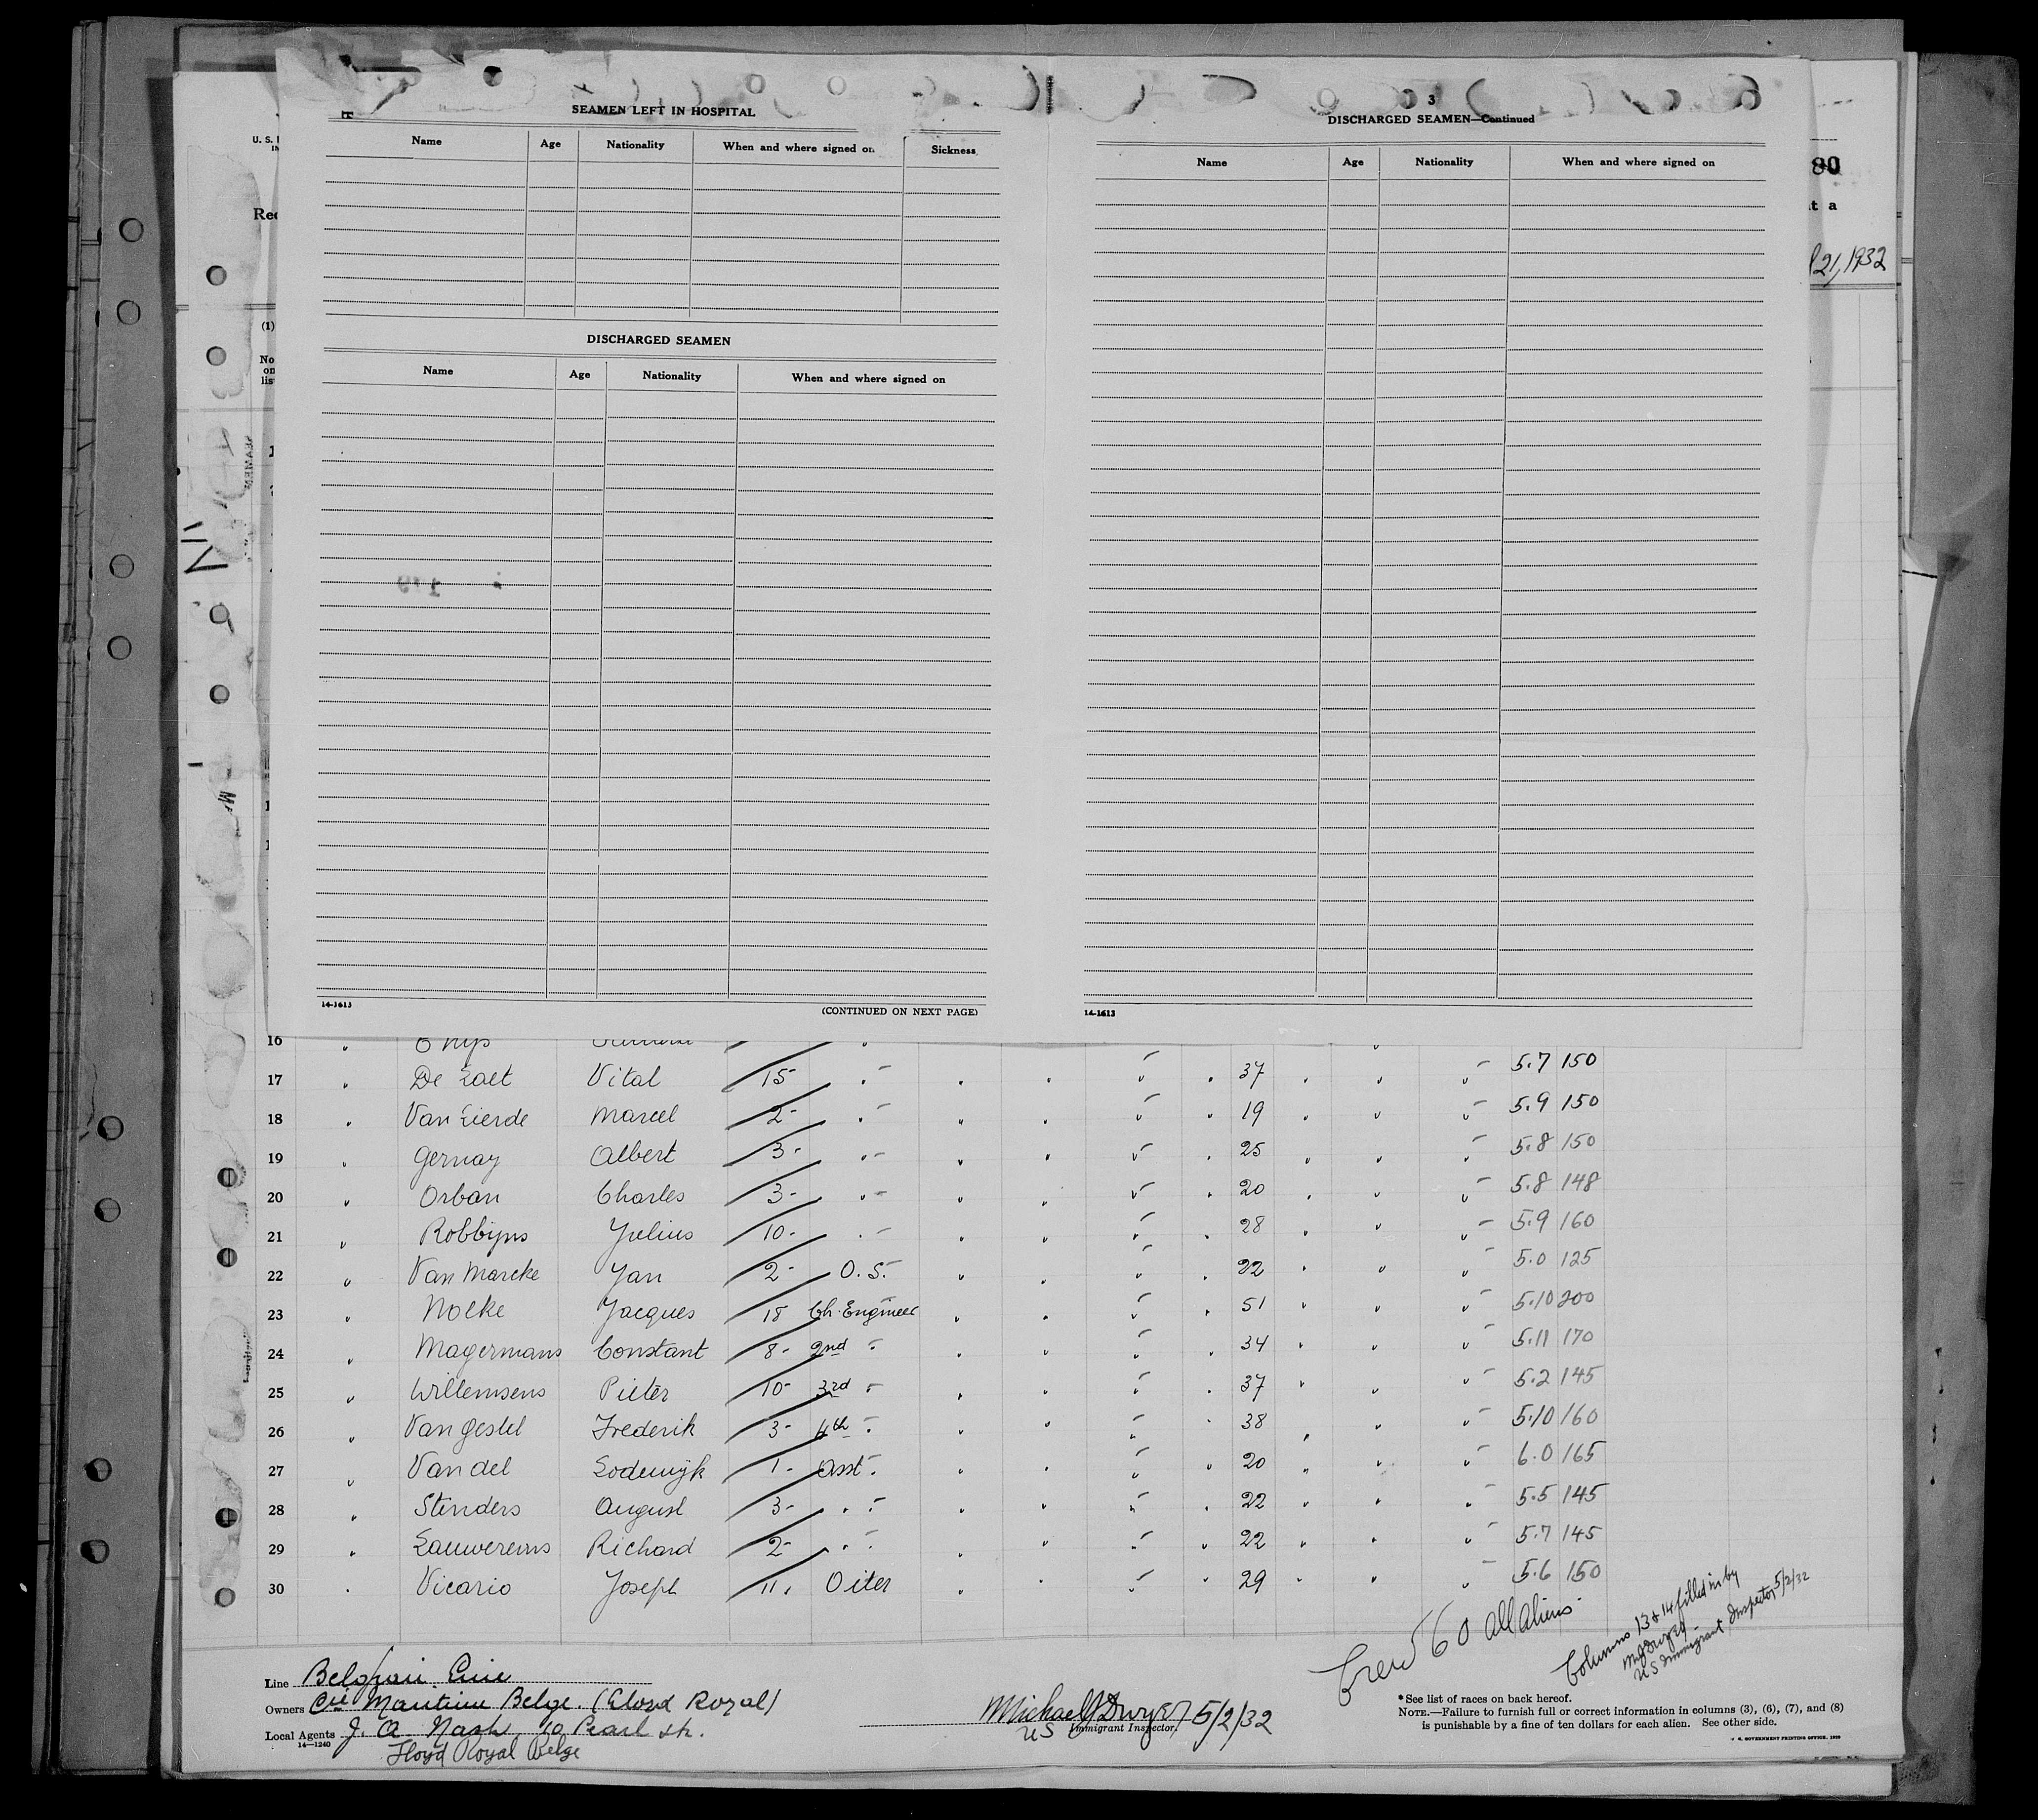 SEAMEN LEFT IN HOSPITAL
Name Age Nationality When and where signed on Sickness
DISCHARGED SEAMEN
Name Age Nationality When and where signed on
14-1613 (CONTINUED ON NEXT PAGE)
3
DISCHARGED SEAMEN—Continued
Name Age Nationality When and where signed on
14-1613
U. S.
80
t a
21, 1932
(1)
No
on
lis
16
17 " De Zaet Vital 15 " " " " " " 37 " " " 5.7 150
18 " Van Lierde Marcel 2- " " " " " 19 " " " 5.9 150
19 " Gernay Albert 3- " " " " " 25 " " " 5.8 150
20 " Orban Charles 3- " " " " " 20 " " " 5.8 148
21 " Robbyns Julius 10- " " " " " 28 " " " 5.9 160
22 " Van Marcke Jan 2- O.S. " " " " 22 " " " 5.0 125
23 " Nolke Jacques 18 Ch. Engineer " " " " 51 " " " 5.10 200
24 " Magermans Constant 8- 2nd " " " " " 34 " " " 5.11 170
25 " Willemsens Pieter 10- 3rd " " " " " 37 " " " 5.2 145
26 " Van Gestel Frederik 3- 4th " " " " " 38 " " " 5.10 160
27 " Van del Lodewijk 1- Asst " " " " " 20 " " " 6.0 165
28 " Stenders August 3- " " " " " " 22 " " " 5.5 145
29 " Lauwereins Richard 2- " " " " " " 22 " " " 5.7 145
30 " Vicario Joseph 11, Oiler " " " " 29 " " " 5.6 150
Crew 60 all aliens
Columns 13 & 14 filled in by
MJ Dwyer
US Immigrant Inspector 5/2/32
Line Belgian Line
Owners Cie Maritime Belge. (Lloyd Royal)
Local Agents J. A. Nash, 10 Pearl St.
14—1240
Lloyd Royal Belge
Michael J Dwyer 5/2/32
US Immigrant Inspector
* See list of races on back hereof.
NOTE.—Failure to furnish full or correct information in columns (3), (6), (7), and (8)
is punishable by a fine of ten dollars for each alien. See other side.
U. S. GOVERNMENT PRINTING OFFICE. 1929